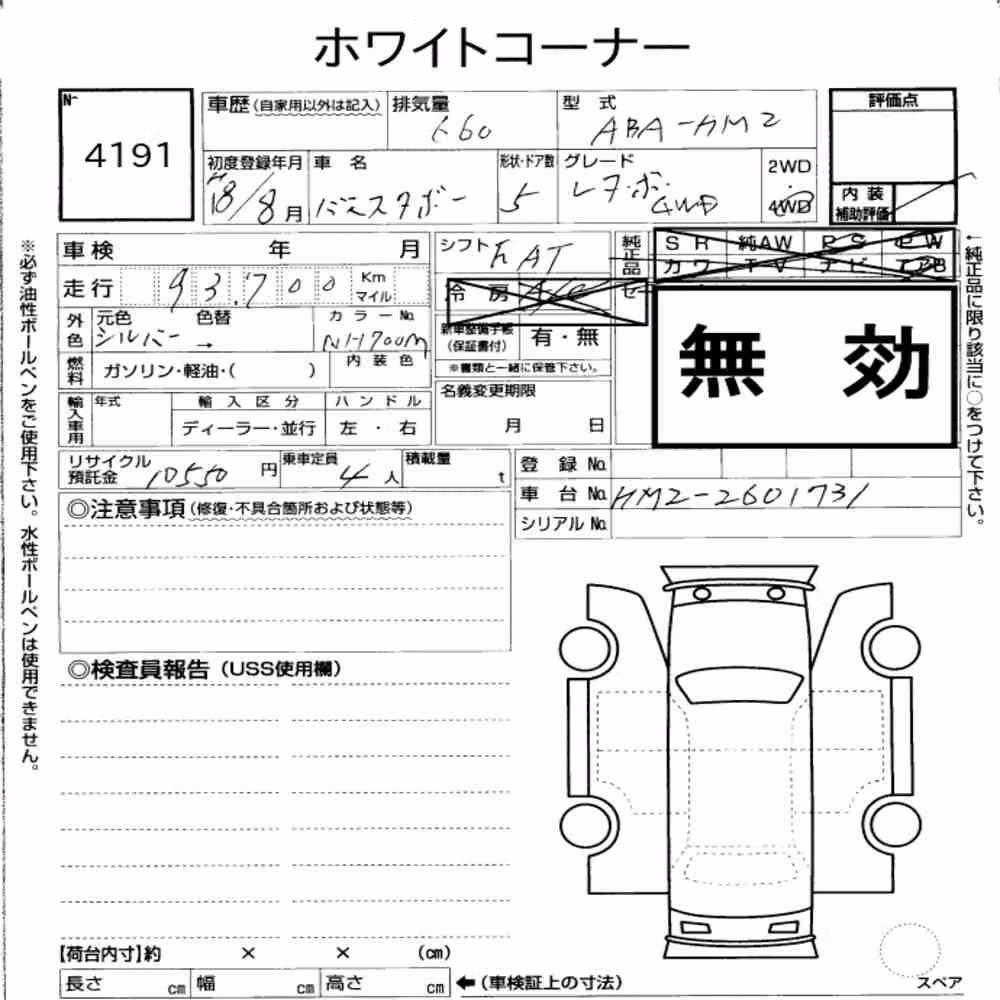 ホワイトコーナー
No
4191
車歴(自家用以外は記入)
排気量
660
型 式
ABA-HM2
評価点
初度登録年月
H18/8月
車 名
バモスホビオ
形状・ドア数
5
グレード
4WD
2WD
4WD
内 装
補助評価
車検 年 月
シフト
FAT
純正品
SR 純AW PS PW
カワ TV ナビ エアB
走行 93,700 Km
マイル
冷 房
A/C
外色
元色 色替
シルバー →
カラーNo.
NH700M
新車整備手帳
(保証書付)
有・無
無 効
内 装 色
燃料
ガソリン・軽油・( )
※書類と一緒に保管下さい。
名義変更期限
月 日
輸入車用
年式
輸 入 区 分
ハ ン ド ル
ディーラー・並行
左 ・ 右
リサイクル
預託金 10550 円
乗車定員
4人
積載量
t
登 録 No.
車 台 No. HM2-2601731
シリアル No.
◎注意事項(修復・不具合箇所および状態等)
◎検査員報告(USS使用欄)
【荷台内寸】約 × × (cm)
長さ cm 幅 cm 高さ cm ←(車検証上の寸法)
スペア
※必ず油性ボールペンをご使用下さい。水性ボールペンは使用できません。
←純正品に限り該当に○をつけて下さい。